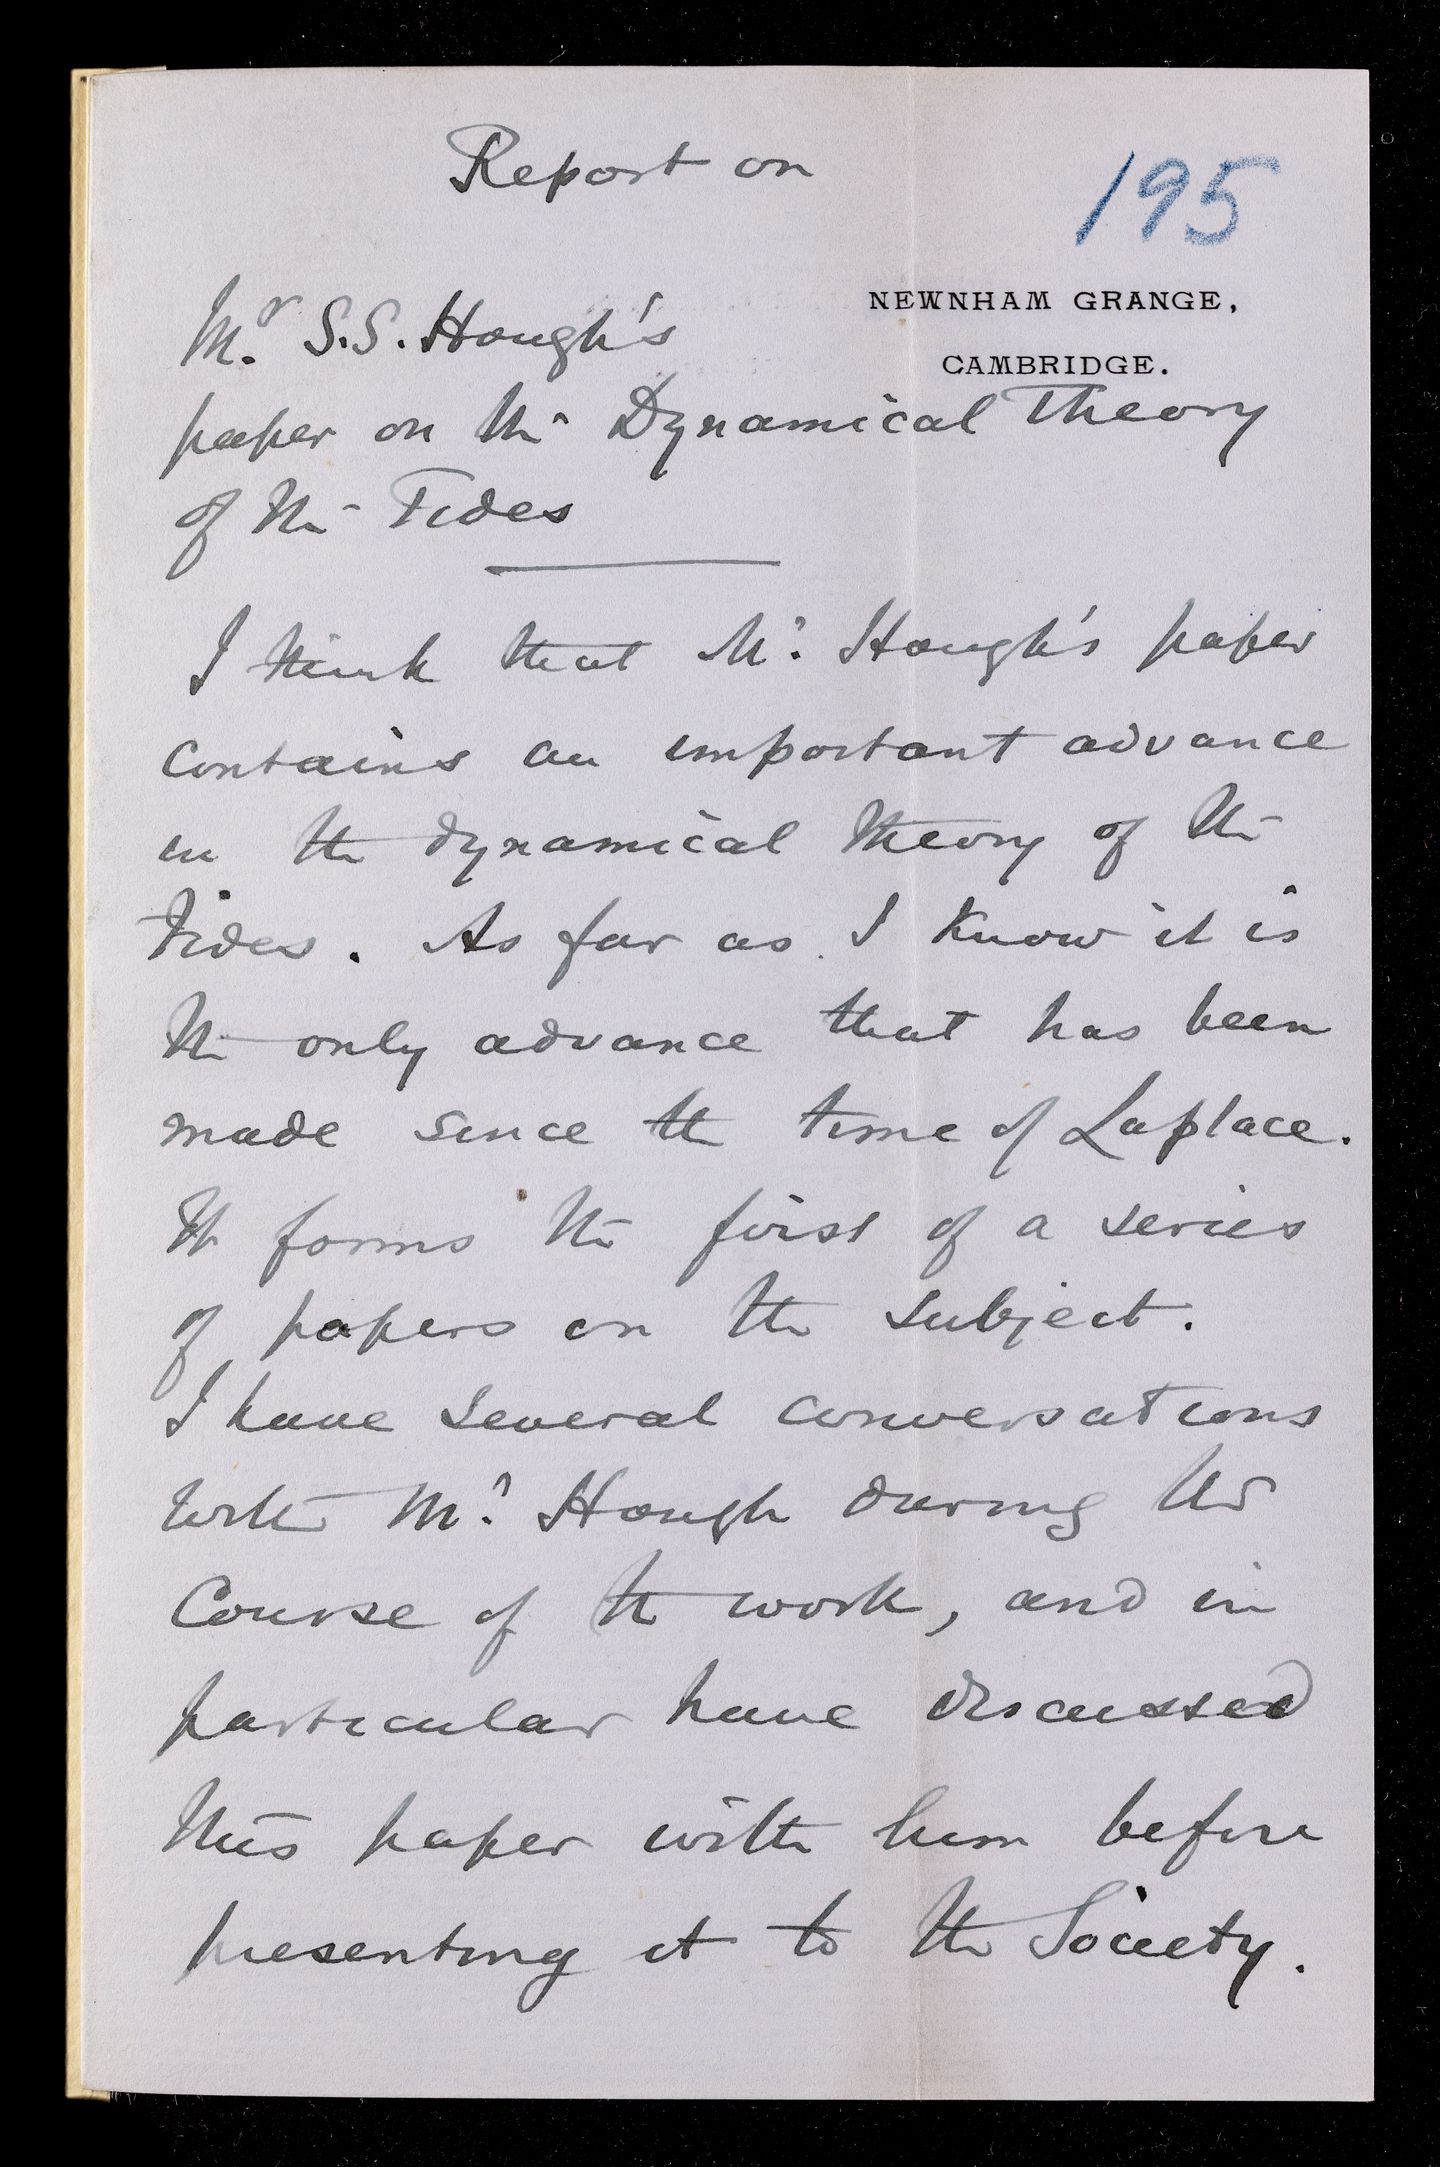 Report on
195
NEWNHAM GRANGE,
CAMBRIDGE.
Mr. S.S. Hough's
paper on the Dynamical Theory
of the Tides
I think that Mr. Hough's paper
contains an important advance
in the dynamical theory of the
Tides. As far as I know it is
the only advance that has been
made since the time of Laplace.
It forms the first of a series
of papers on the subject.
I have several conversations
with Mr. Hough during the
Course of the work, and in
particular have discussed
this paper with him before
presenting it to the Society.